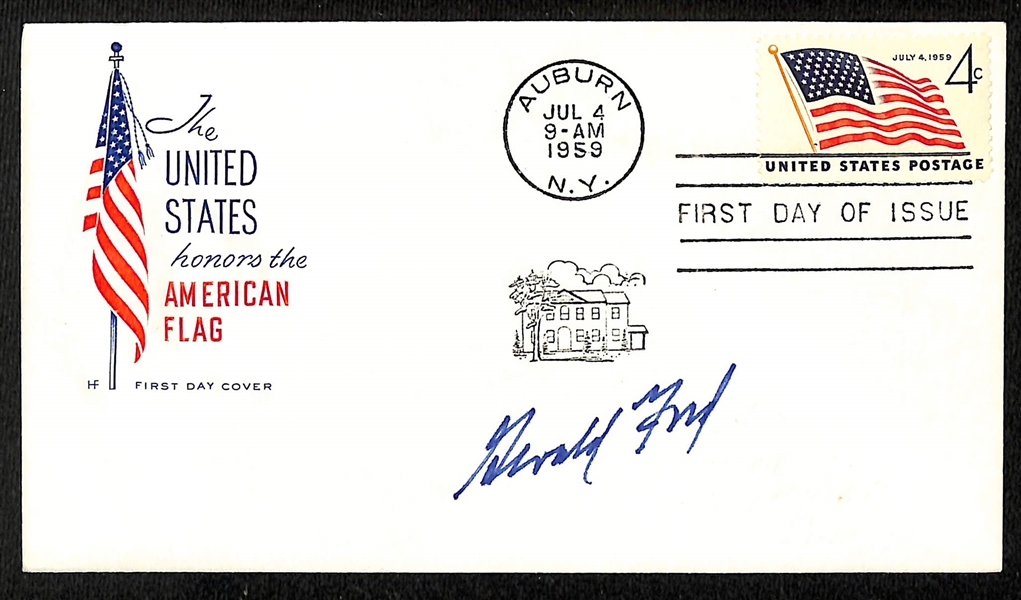 The
UNITED
STATES
honors the
AMERICAN
FLAG
HF FIRST DAY COVER
AUBURN
JUL 4
9-AM
1959
N.Y.
JULY 4, 1959 4c
UNITED STATES POSTAGE
FIRST DAY OF ISSUE
Gerald Ford